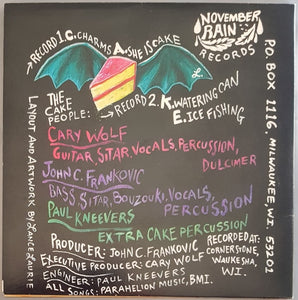 NOVEMBER
RAIN
RECORDS
P.O. BOX 1116, MILWAUKEE, WI. 53201
→RECORD 1. C. CHARMS A. SHE IS CAKE
L.
THE
CAKE
PEOPLE:
→RECORD 2. K. WATERING CAN
E. ICE FISHING
CARY WOLF
GUITAR, SITAR, VOCALS, PERCUSSION,
DULCIMER
JOHN C. FRANKOVIC
BASS SITAR, BOUZOUKI, VOCALS,
PERCUSSION
PAUL KNEEVERS
EXTRA CAKE PERCUSSION
PRODUCER: JOHN C. FRANKOVIC
EXECUTIVE PRODUCER: CARY WOLF
ENGINEER: PAUL KNEEVERS
ALL SONGS: PARAHELION MUSIC, BMI.
RECORDED AT:
CORNERSTONE,
WAUKESHA,
WI.
LAYOUT AND ARTWORK BY LANCE LAURIE